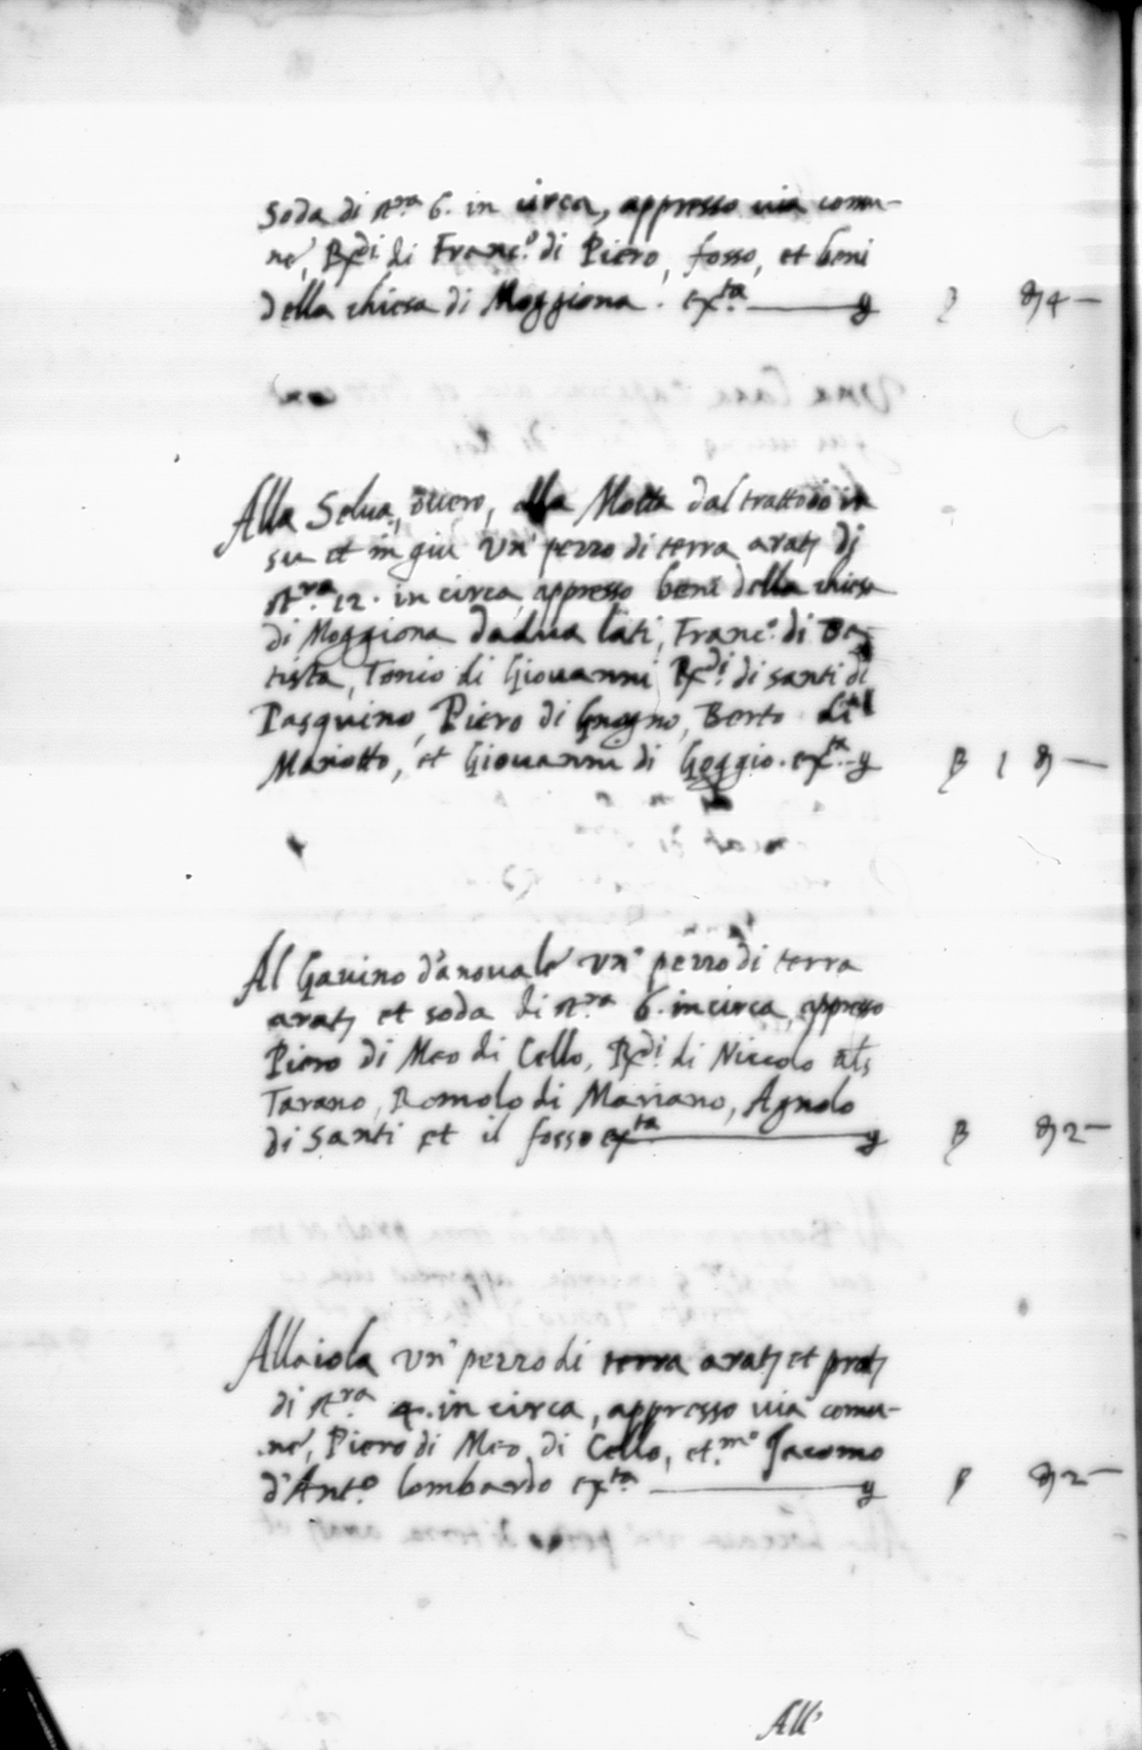 soda di st.ra 6. in circa, appresso uia comu-
ne, Rx.di di Franc.o di Piero, fosso, et beni
della chiesa di Moggiona. ex.ta
4 —
Alla Selua, ouero, alla Motta dal trattoio in
su et in giu un' pezzo di terra arat. di
st.ra 12. in circa, appresso beni della chiesa
di Moggiona dadua lati, Franc.o di Ba-
tista, Tonio di Giouanni, Rx.di di santi di
Pasquino, Piero di Gnogno, Berto di
Mariotto, et Giouanni di Goggio. ex.ta
1 —
Al Gauino d'anouale un' pezzo di terra
arat. et soda di st.ra 6. in circa, appresso
Piero di Meo di Cello, Rx.di di Niccolo als
Tarano, Romolo di Mariano, Agnolo
di Santi et il fosso ex.ta
2 —
Allaiola un' pezzo di terra arat. et prat.
di st.ra 4. in circa, appresso uia comu-
ne, Piero di Meo di Cello, et m.o Jacomo
d'Ant.o lombardo ex.ta
2 —
All'